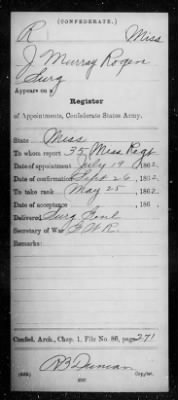 (CONFEDERATE.)
R Miss
J Murray Rogers
Surg
Appears on a
Register
of Appointments, Confederate States Army.
State Miss
To whom report 35 Miss Regt
Date of appointment July 19, 1862
Date of confirmation Sept 26, 1862
To take rank May 25, 1862
Date of acceptance , 186
Delivered Surg
Secretary of War G.W.R.
Remarks:
Confed. Arch., Chap. 1, File No. 86, page 271
R B Duncan
Copyist.